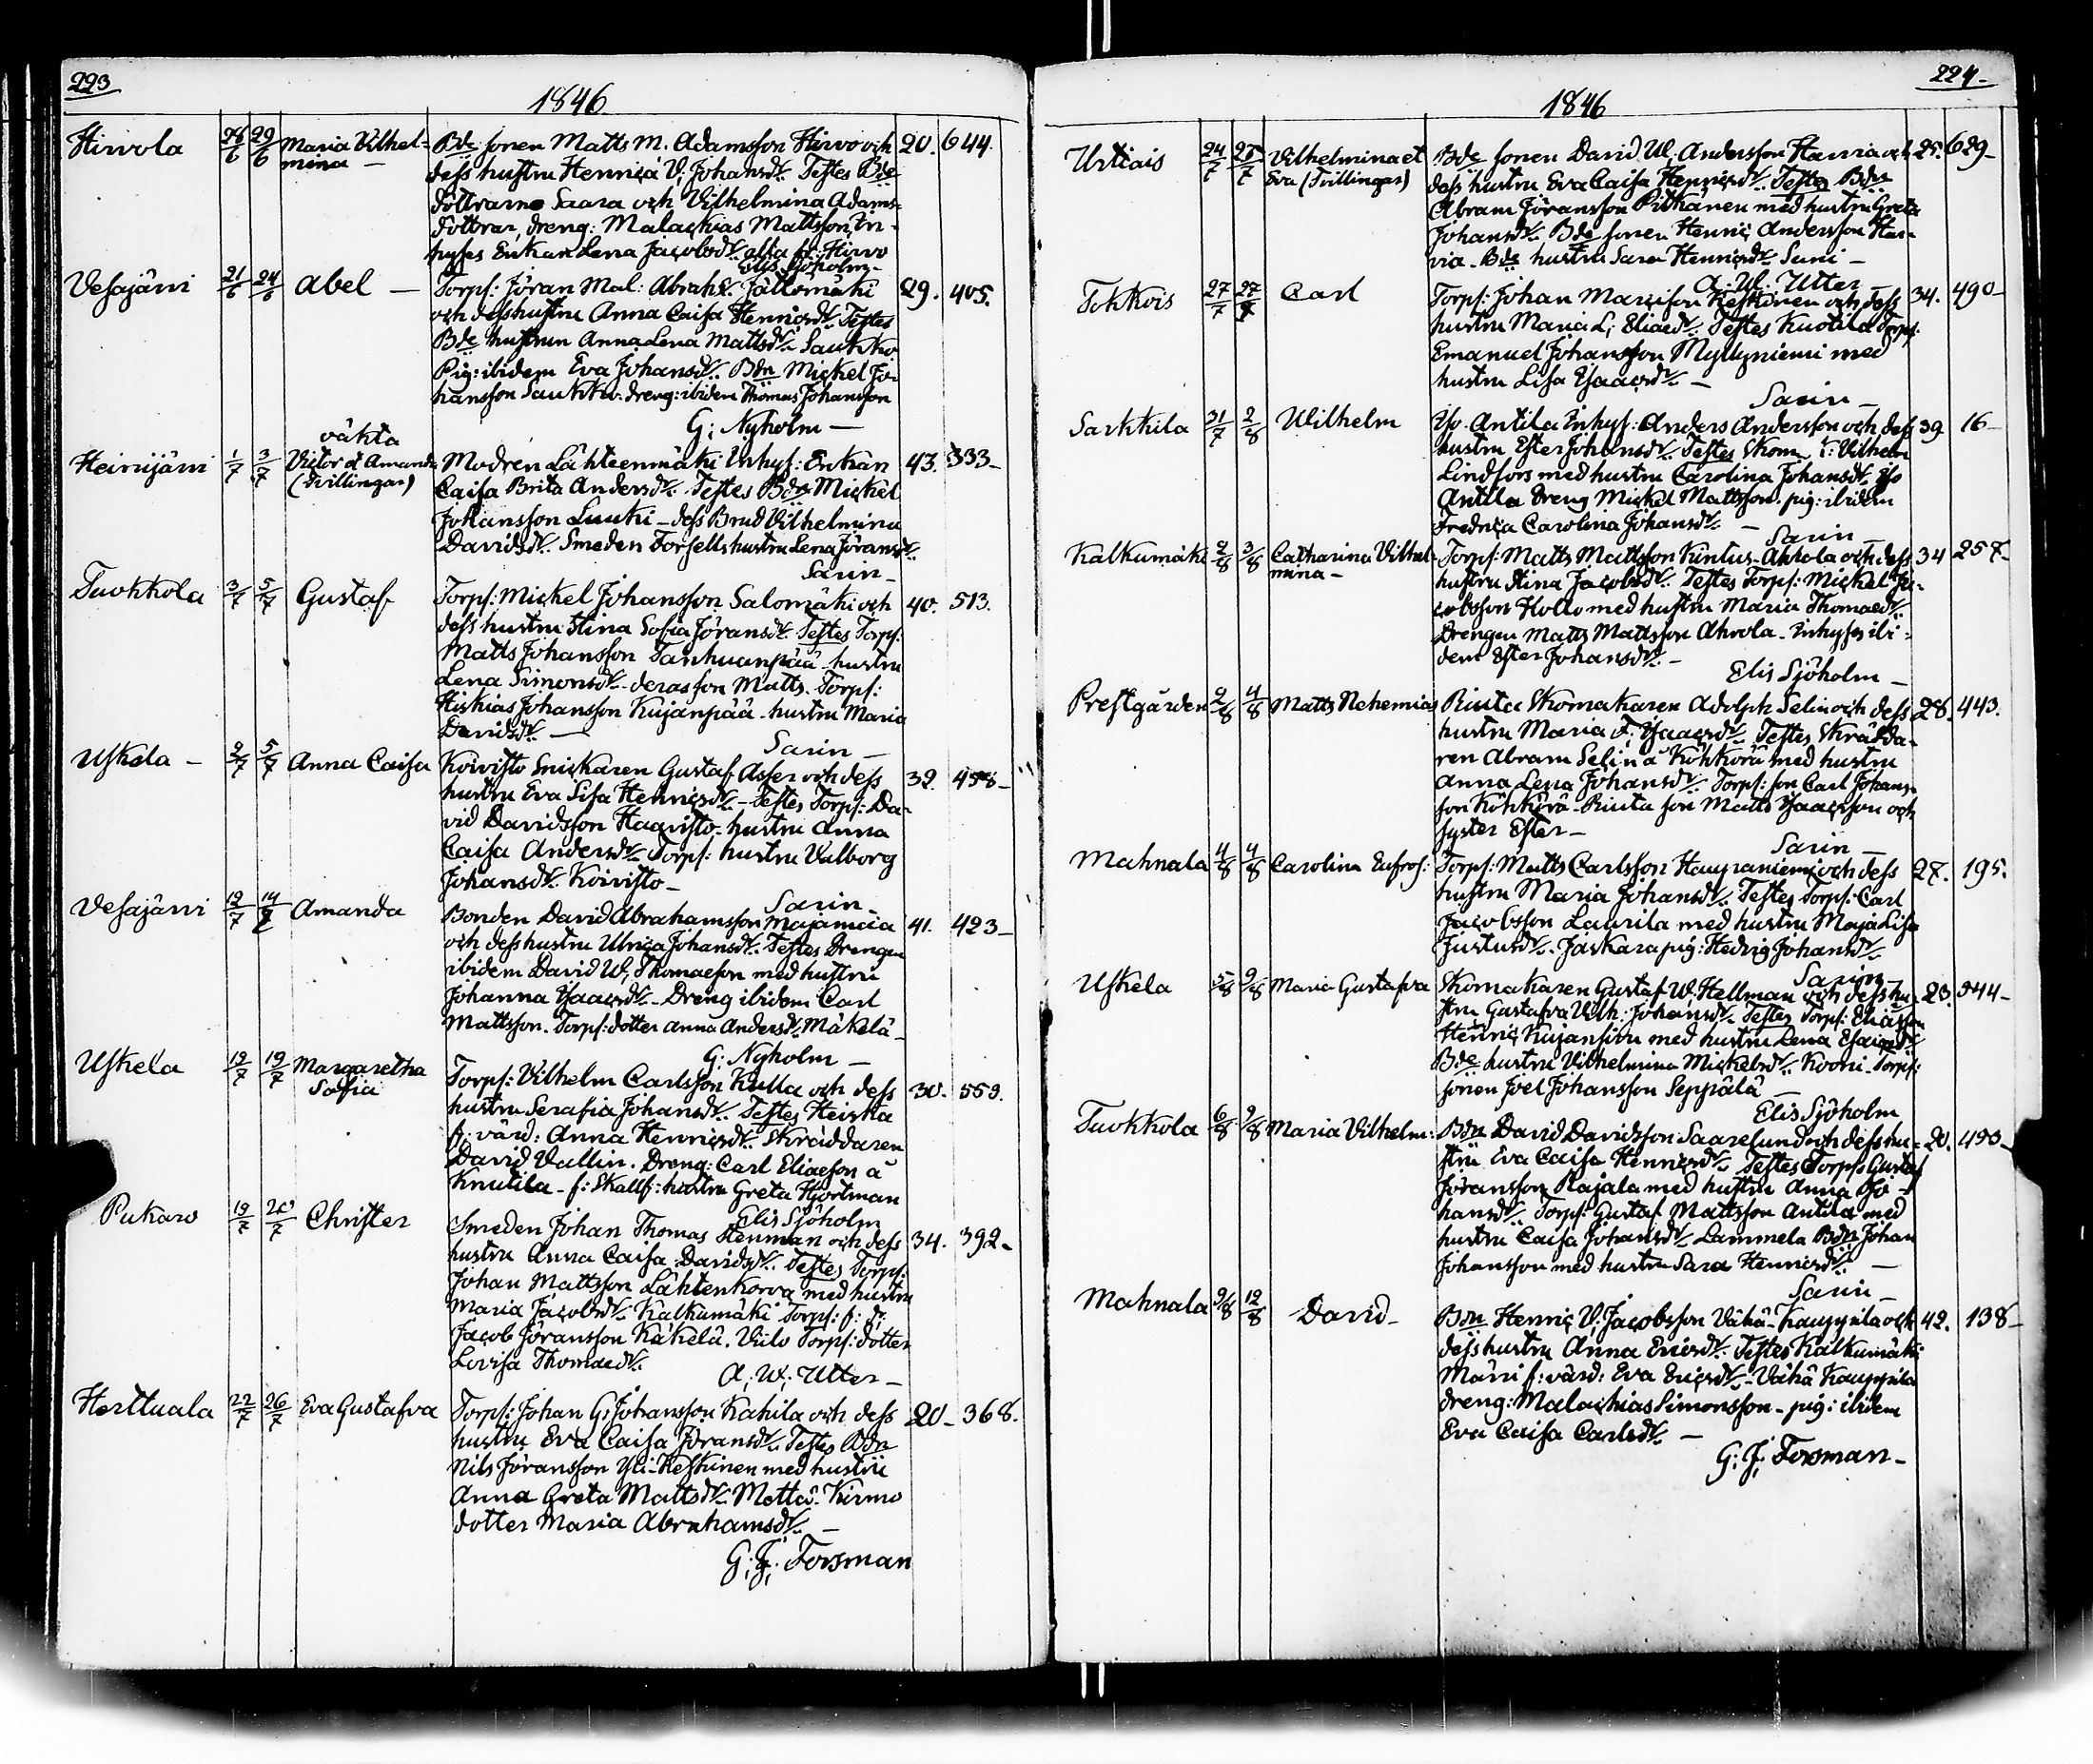 223
1846.
Hirvola 28/6 29/6 Maria Vilhel- Bde sonen Matts M. Adamsson Hirvo och 20. 644.
mina — dess hustru Henrica V; Johansdr. Testes Bde
döttrarne Saara och Vilhelmina Adams-
döttrar, dreng: Malackias Mattsson, In-
hyses Enkan Lena Jacobsdr. alla fr. Hirvo
Elis Sjöholm —
Vesajärvi 21/6 24/6 Abel — Torps: Jöran Mal: Abrahs. Jällömäki 29. 405.
och dess hustru Anna Caisa Henricsdr. Testes
Bde hustrun Anna Lena Mattsdr. Saukko
Pig: ibidem Eva Johansdr. Bdn Mickel Jo-
hansson Saukko. dreng: ibidem Thomas Johansson
G; Nyholm —
väkta
Heinijärvi 1/7 3/7 Victor et Amanda Modren Lähteenmäki Inhys: Enkan 43. 333—
(Tvillingar) Caisa Brita Andersdr. Testes Bdn Mickel
Johansson Luuki — dess Brud Vilhelmina
Davidsdr. Smeden Forsells hustru Lena Jöransdr.
Sarin —
Tuokkola 3/7 5/7 Gustaf Torps: Mickel Johansson Salomäki och 40. 513.
dess hustru Stina Sofia Jöransdr. Testes Torps:
Matts Johansson Tanhuanpää — hustru
Lena Simonsdr. deras son Matts. Torps:
Hiskias Johansson Kujanpää — hustru Maria
Davidsdr. —
Sarin —
Uskela — 2/7 5/7 Anna Caisa Koivisto Snickaren Gustaf Asser och dess 32. 458—
hustru Eva Lisa Henricsdr. — Testes Torps: Da-
vid Davidsson Haavisto — hustru Anna
Caisa Andersdr. Torps: hustru Valborg
Johansdr. Koivisto —
Sarin —
Vesajärvi 12/7 14/7 Amanda Bonden David Abrahamsson Majamaa 41. 423—
och dess hustru Ulrica Johansdr. Testes Drengen
ibidem David W; Thomaeson med hustru
Johanna Isaacsdr. — Dreng ibidem Carl
Mattsson. Torps: dotter Anna Andersdr. Mäkelä —
G: Nyholm —
Uskela 12/7 19/7 Margaretha Torps: Vilhelm Carlsson Kulla och dess 30. 559.
Sofia hustru Serafia Johansdr. Testes Heiska
f: värd: Anna Henricsdr. Skräddaren
David Vallin. Dreng: Carl Eliaeson å
Knutila — f: Skallf: hustru Greta Hjortman
Elis Sjöholm
Pukaro 19/7 20/7 Christer Smeden Johan Thomas Stenman och dess 34. 392—
hustru Anna Caisa Davidsdr. Testes Torps:
Johan Mattsson Lähtenkorva med hustru
Maria Jacobsdr. Kalkumäki Torps: f: d:
Jacob Jöransson Käkelä. Viilo Torps: dotter
Lovisa Thomaedr.
A; W; Utter —
Herttuala 22/7 26/7 Eva Gustafva Torps: Johan G: Johansson Kahila och dess 20— 368.
hustru Eva Caisa Jöransdr. Testes Bdn
Nils Jöransson Yli-Keskinen med hustru
Anna Greta Mattsdr. Kirmo
dotter Maria Abrahamsdr. —
G; F; Forsman
224—
1846
Urtiais 24/7 25/7 Vilhelmina et Bde sonen David W; Andersson Harvia och 25. 629—
Eva (Tvillingar) dess hustru Eva Caisa Henricsdr. Testes Bdn
Abram Jöransson Pitkänen med hustru Greta
Johansdr. Bde sonen Henric Andersson Har-
via — Bde hustru Sara Henricsdr. Suni —
A; W; Utter —
Tokkois 27/7 27/7 Carl Torps: Johan Marcison Keskinen och dess 34. 490—
hustru Maria L; Eliaedr. Testes Kuotila Torps:
Emanuel Johansson Myllyniemi med
hustru Lisa Isaacsdr. —
Sarin —
Sarkkila 31/7 2/8 Wilhelm Iso Antila Inhys: Anders Andersson och dess 39. 16—
hustru Ester Johansdr. Testes Skom: Vilhelm
Lindfors med hustru Carolina Johansdr. Iso
Antila dreng Mickel Mattsson. pig: ibidem
Fredrica Carolina Johansdr. —
Sarin —
Kalkumäki 2/8 3/8 Catharina Vilhel- Torps: Matts Mattsson Kintus-Ahvola och dess 34 257—
mina — hustru Stina Jacobsdr. Testes Torps: Mickel Ja-
cobsson Hollo med hustru Maria Thomaedr.
Drengen Matts Mattsson Ahvola — Inhyses ibi-
dem Ester Johansdr. —
Elis Sjöholm —
Prestgården 2/8 4/8 Matts Nehemias Rinta Skomakaren Adolph Selin och dess 28. 443.
hustru Maria F; Isaacsdr. Testes Skrädda-
ren Abram Selin å Köhkörä med hustru
Anna Lena Johansdr. Torps: son Carl Johans-
son Köhkörä — Rinta son Matts Isaacsson och
syster Ester —
Sarin —
Mahnala 4/8 4/8 Carolina Eufros: Torps: Matts Carlsson Hauraniemi och dess 27. 195.
hustru Maria Johansdr. Testes Torps: Carl
Jacobsson Laurila med hustru Maja Lisa
Justusdr. Jaskara pig: Hedvig Johansdr.
Sarin —
Uskela 5/8 9/8 Maria Gustafva Skomakaren Gustaf W; Hellman och dess hu- 23. 544—
stru Gustafva Vilh: Johansdr. Testes Torps: Eliasson
Henric Kujansivu med hustru Lena Esaiaedr.
Bde hustru Vilhelmina Mickelsdr. Kooni — Torps:
sonen Joel Johansson Seppälä —
Elis Sjöholm
Tuokkola 6/8 9/8 Maria Vilhelm: Bdn David Davidsson Saarelund och dess hu- 20. 493—
stru Eva Caisa Henricsdr. Testes Torps: Gustaf
Jöransson Rajala med hustru Anna Jo-
hansdr. Torps: Gustaf Mattsson Antila med
hustru Caisa Johansdr. Lammela Bdn Johan
Johansson med hustru Sara Henricsdr. —
Sarin —
Mahnala 9/8 12/8 David — Bdn Henric W; Jacobsson Vähä-Kauppila och 42. 138—
dess hustru Anna Ericsdr. Testes Kalkumäki
Märri f: värd: Eva Ericsdr. — Vähä Kauppila
dreng: Malachias Simonsson — pig: ibidem
Eva Caisa Carlsdr. —
G; F; Forsman —